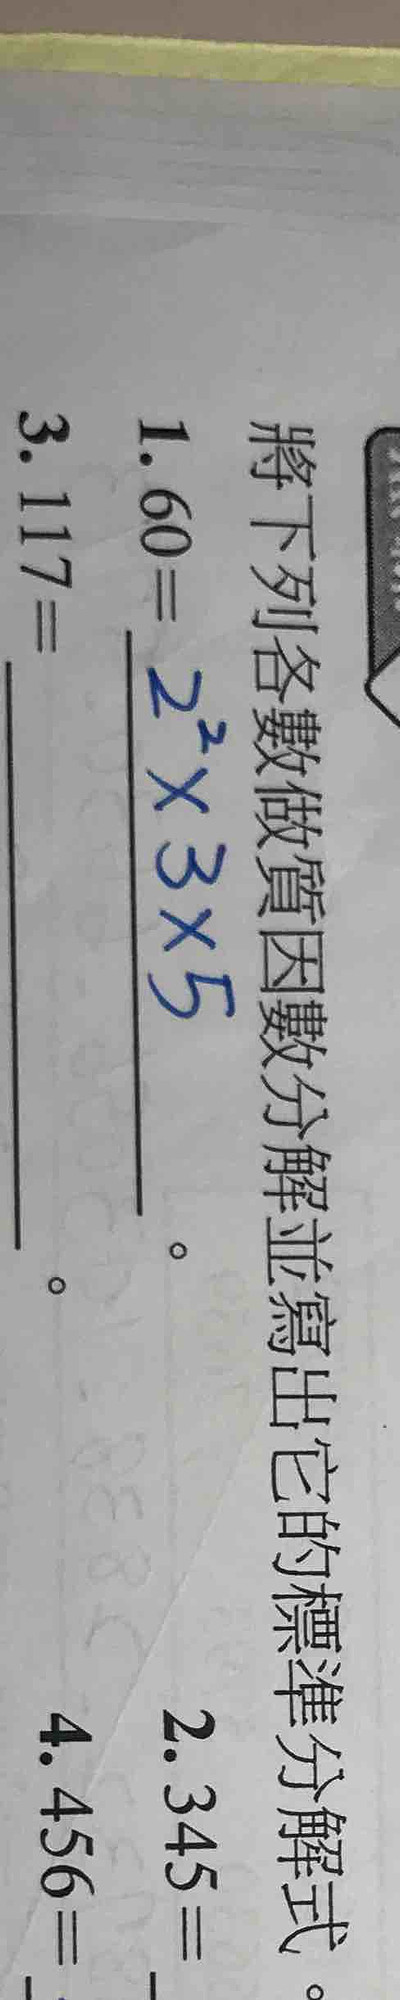 將下列各數做質因數分解並寫出它的標準分解式。
1. 60= 2²×3×5 。
2. 345=
3. 117= 。
4. 456=